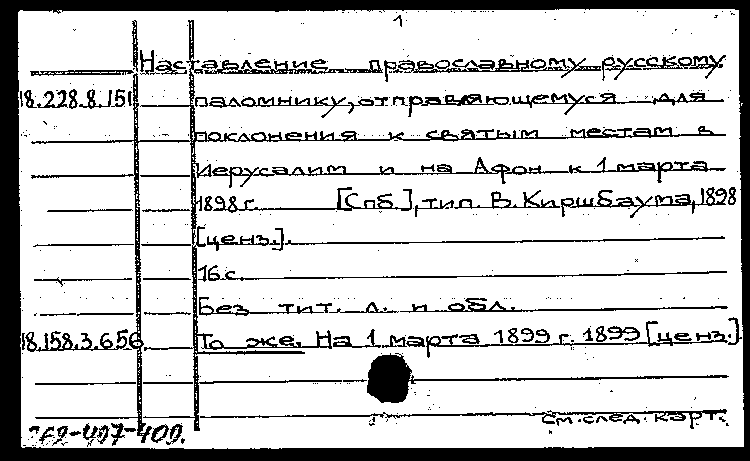 1
Наставление православному русскому
18.228.8.151 паломнику, отправляющемуся для
поклонения к святым местам в
Иерусалим и на Афон к 1 марта
1898 г. [Спб.], тип. В. Киршбаума, 1898
[ценз.].
16 с.
Без тит. л. и обл.
18.158.3.656. То же. На 1 марта 1899 г. 1899 [ценз.]
См. след. карт.